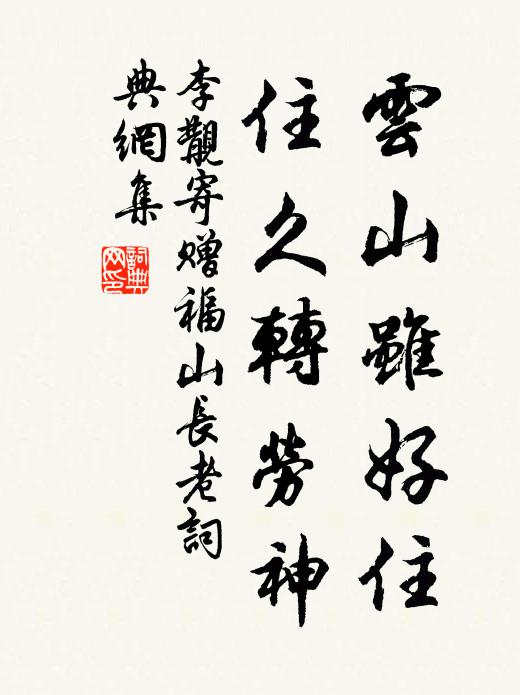 雲山雖好住
住久轉勞神
李覯寄贈福山長老詞
典網集
詞典網印